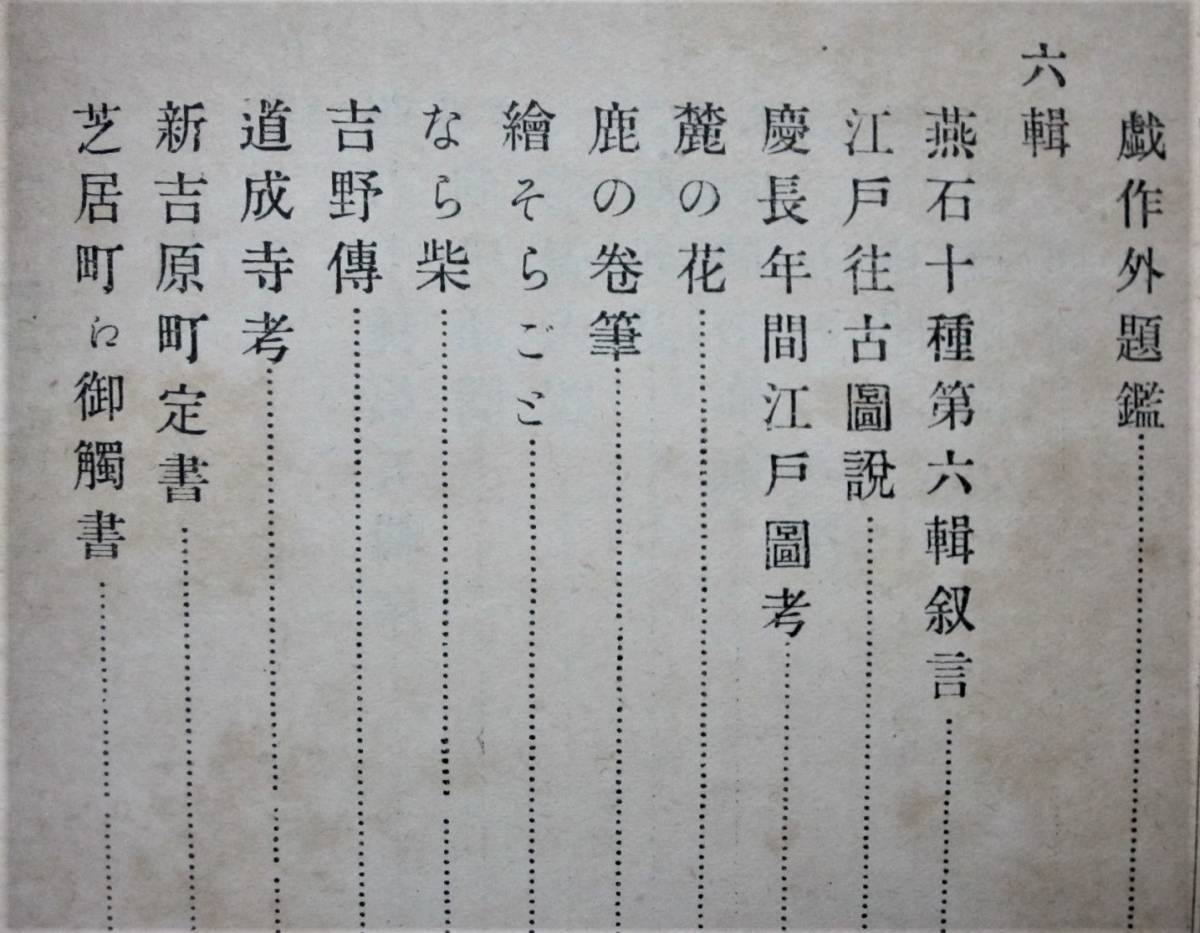 戲作外題鑑
六輯
燕石十種第六輯叙言
江戶往古圖說
慶長年間江戶圖考
麓の花
鹿の卷筆
繪そらごと
なら柴
吉野傳
道成寺考
新吉原町定書
芝居町江御觸書